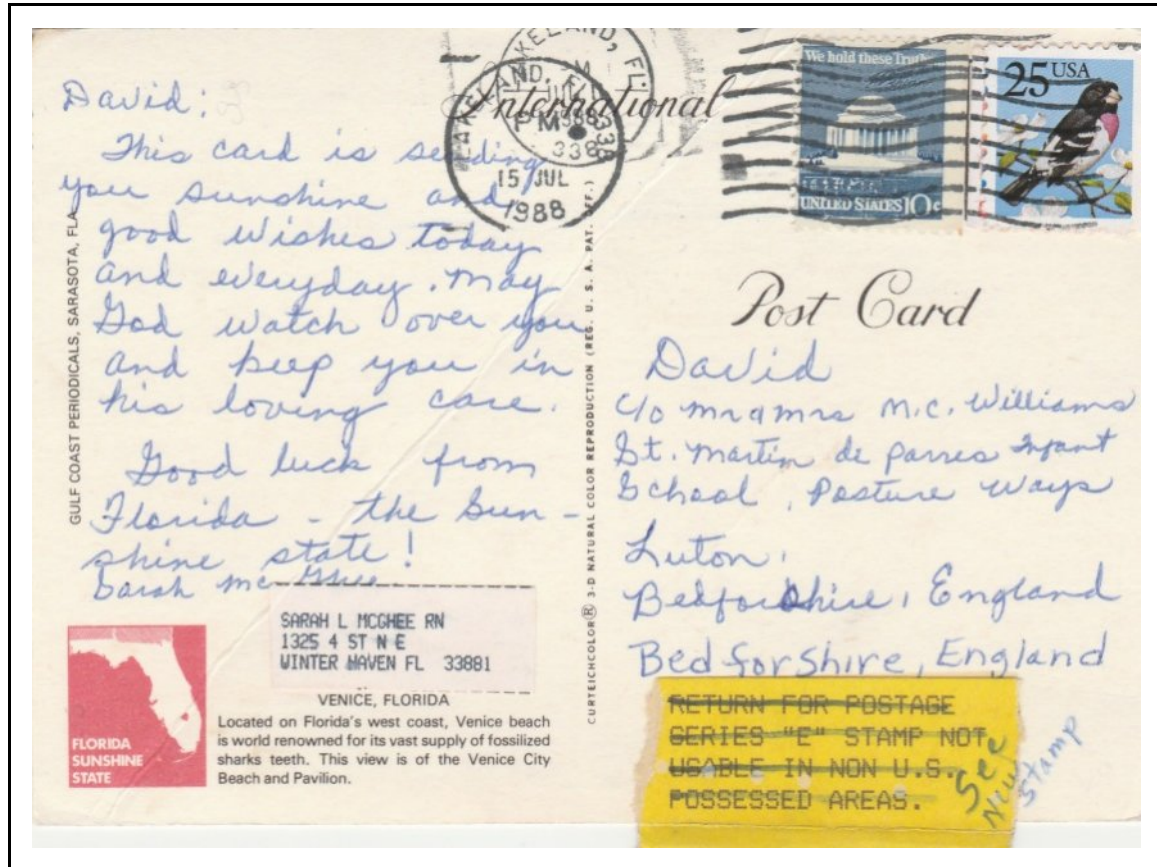 David:
This card is sending
you sunshine and
good wishes today
and everyday. May
God watch over you
and keep you in
his loving care.
Good luck from
Florida - the Sun -
shine state!
Sarah McGhee
SARAH L MCGHEE RN
1325 4 ST N E
WINTER HAVEN FL 33881
VENICE, FLORIDA
Located on Florida's west coast, Venice beach
is world renowned for its vast supply of fossilized
sharks teeth. This view is of the Venice City
Beach and Pavilion.
FLORIDA
SUNSHINE
STATE
GULF COAST PERIODICALS, SARASOTA, FLA.
CURTEICHCOLOR® 3-D NATURAL COLOR REPRODUCTION (REG. U. S. A. PAT. OFF.)
International
LAKELAND, FL 338
PM
15 JUL
1988
LAKELAND, FL
338
We hold these Truths
UNITED STATES 10c
25 USA
Post Card
David
c/o Mr & Mrs M.C. Williams
St. Martin de Parres Infant
School, Pasture Ways
Luton,
Bedfordshire, England
Bedforshire, England
RETURN FOR POSTAGE
SERIES "E" STAMP NOT
USABLE IN NON U.S.
POSSESSED AREAS.
See
New
Stamp